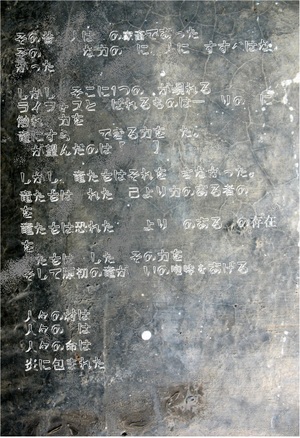 その昔 人は の家畜であった
その な力の に、人に すすべはな
かった
しかし そこに1つの が現れる
ライフォスと ばれるものは一 りの に
触れ 力を
竜にすら できる力を た。
が望んだのは「 」
しかし、竜たちはそれを さなかった。
竜たちは れた 己より力のある者の
を
竜たちは恐れた より のある の存在
を
たちは した その力を
そして最初の竜が いの咆哮をあげる
人々の村は
人々の は
人々の命は
炎に包まれた